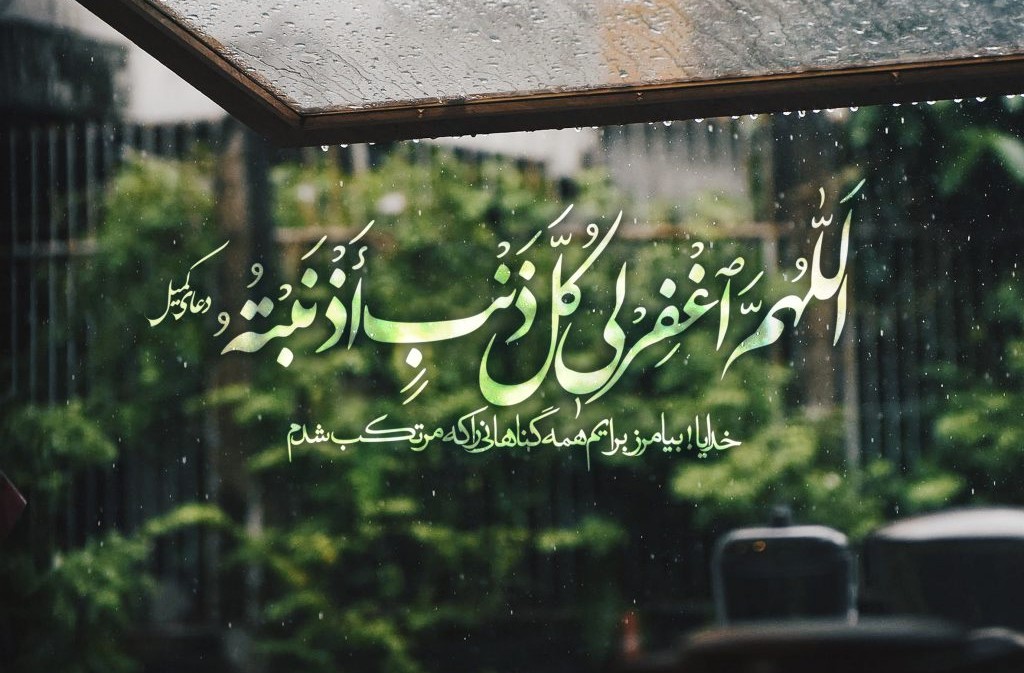 اَللّٰهُمَّ ٱغْفِرْ لِی كُلَّ ذَنْبٍ أَذْنَبْتُهُ
دعای کمیل
خدایا! بیامرز برایم همه گناهانی را که مرتکب شدم